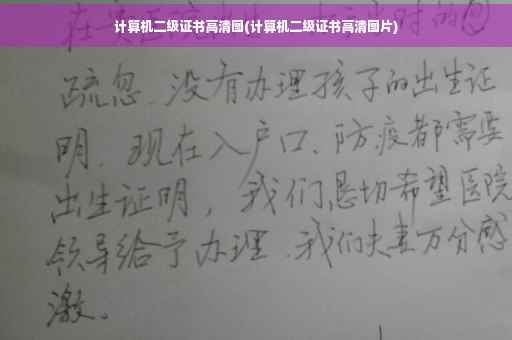 计算机二级证书高清图(计算机二级证书高清图片)
疏忽、没有办理孩子的出生证
明、现在入户口、防疫都需要
出生证明，我们恳切希望医院
领导给予办理、我们夫妻万分感
激。